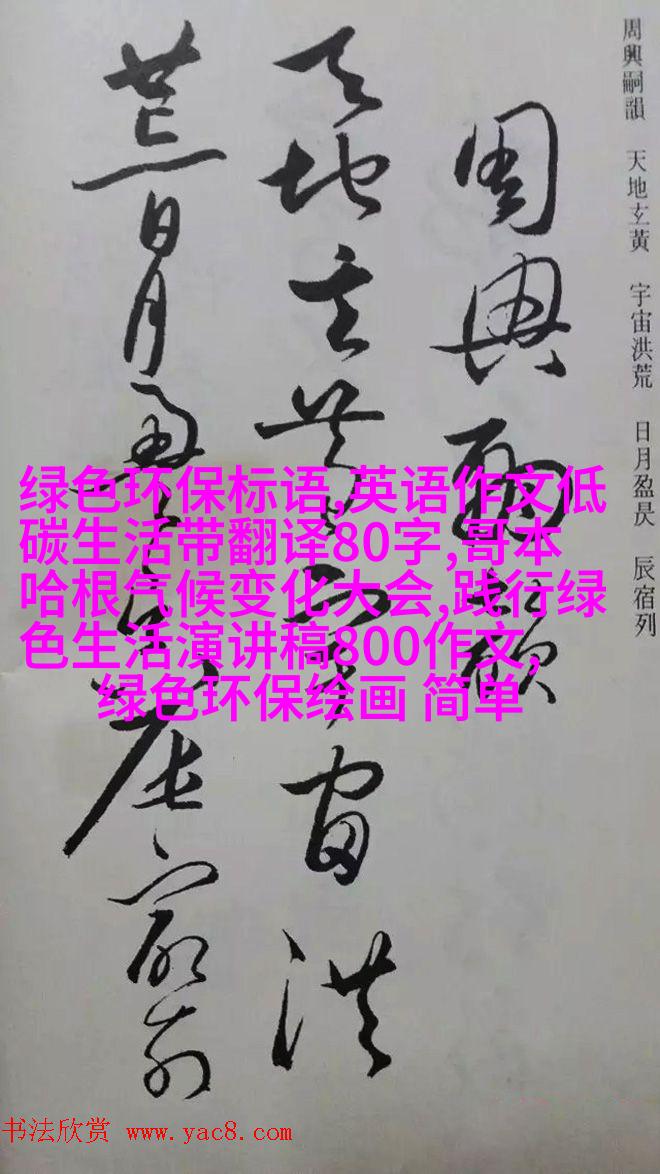 周興嗣韻 天地玄黃 宇宙洪荒 日月盈昃 辰宿列
周興嗣韻
天地玄黃宇宙洪
荒日月盈昃辰宿列
绿色环保标语,英语作文低
碳生活带翻译80字,哥本
哈根气候变化大会,践行绿
色生活演讲稿800作文,
绿色环保绘画 简单
书法欣赏 www.yac8.com